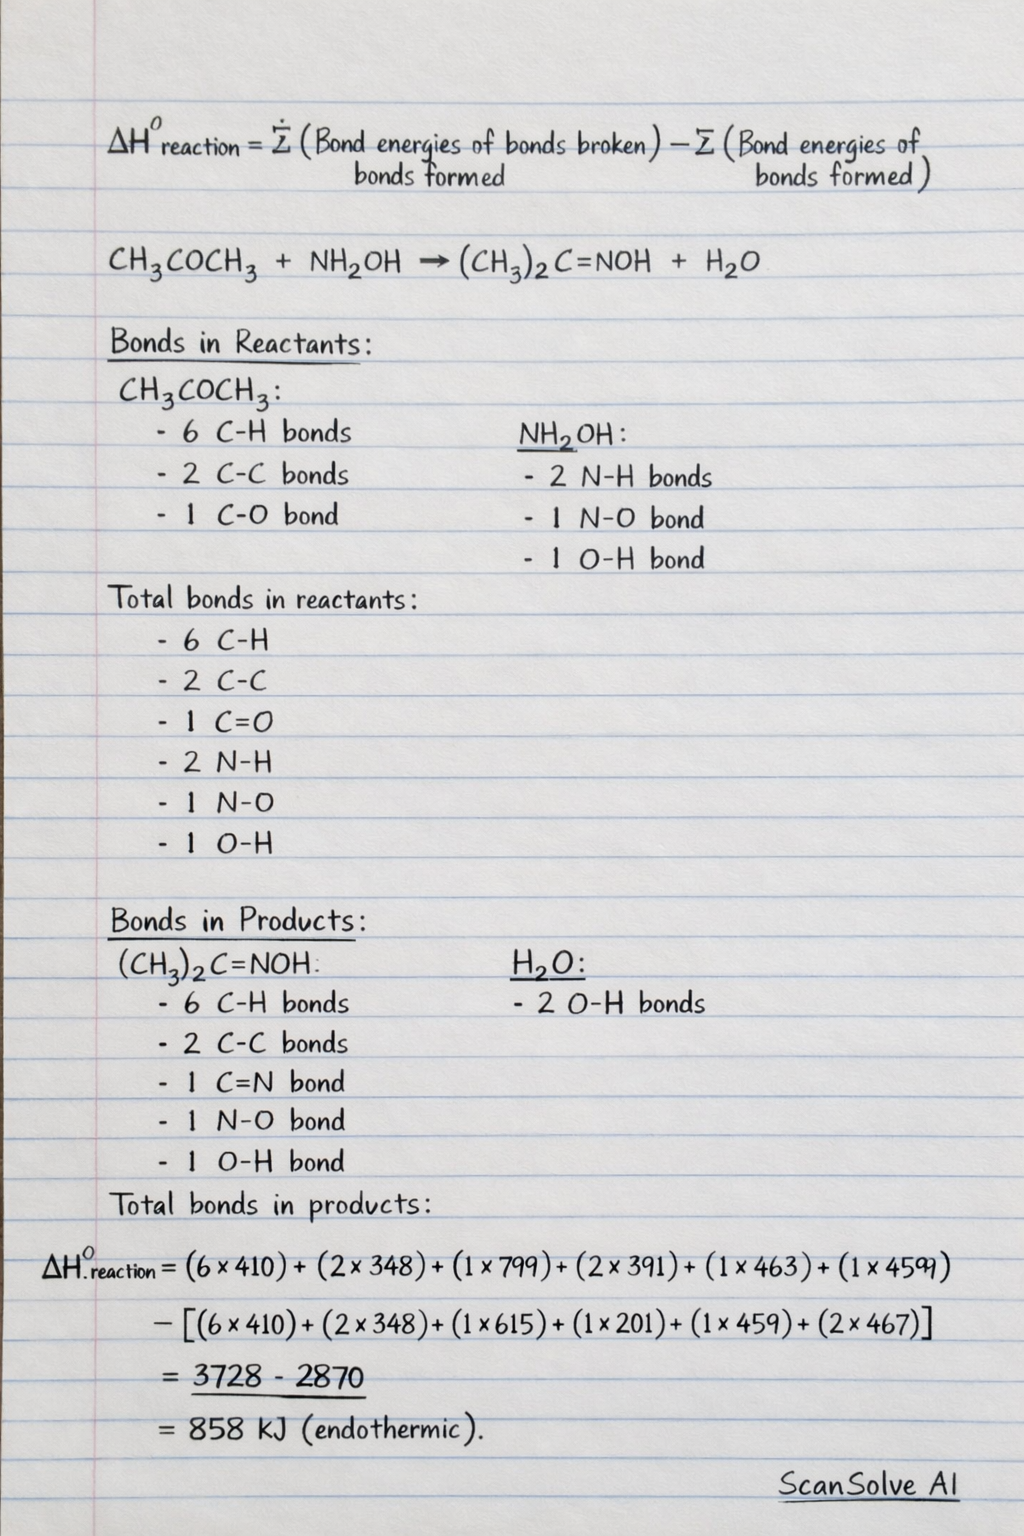 ΔH⁰reaction = Σ (Bond energies of bonds broken) – Σ (Bond energies of
bonds formed bonds formed)
CH₃COCH₃ + NH₂OH → (CH₃)₂C=NOH + H₂O
Bonds in Reactants:
CH₃COCH₃:
- 6 C-H bonds
- 2 C-C bonds
- 1 C-O bond
NH₂OH:
- 2 N-H bonds
- 1 N-O bond
- 1 O-H bond
Total bonds in reactants:
- 6 C-H
- 2 C-C
- 1 C=O
- 2 N-H
- 1 N-O
- 1 O-H
Bonds in Products:
(CH₃)₂C=NOH:
- 6 C-H bonds
- 2 C-C bonds
- 1 C=N bond
- 1 N-O bond
- 1 O-H bond
H₂O:
- 2 O-H bonds
Total bonds in products:
ΔH⁰.reaction = (6 × 410) + (2 × 348) + (1 × 799) + (2 × 391) + (1 × 463) + (1 ×
– [(6 × 410) + (2 × 348) + (1 × 615) + (1 × 201) + (1 × 459) + (2 × 467)]
= 3728 - 2870
= 858 KJ (endothermic).
ScanSolve AI